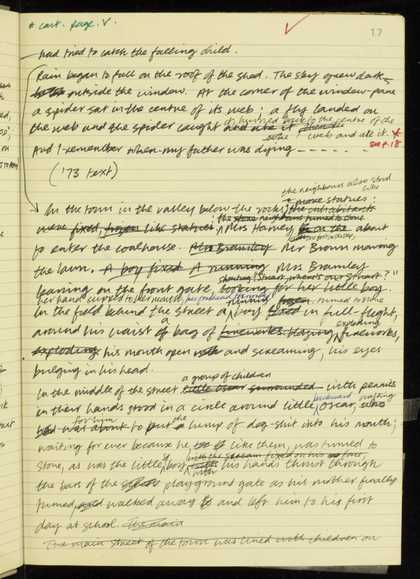 * cont. page V.
17
had tried to catch the falling child.
Rain began to fall on the roof of the shed. The sky grew dark
outside the window. At the corner of the window-pane
a spider sat in the centre of its web; a fly landed on
it hurried back to the centre of the
the web and the spider caught had ate it
web and ate it. *
And I remember when my father was dying ------
see p. 18
('73 text)
the neighbours also stood
like
more statues:
In the town in the valley below the rocks, the inhabitants
were fixed, frozen like statues; Mrs Harvey about
to enter the coalhouse. Mrs Bramley Mr Brown mowing
the lawn. A boy fixed A running Mrs Bramley
shouting "Stuart, where's our Stuart?"
leaning on the front gate, looking for her little boy.
her hand cupped to her mouth,
In the field behind the street a boy in full-flight,
turned
around his waist a bag of fireworks blazing fireworks,
exploding
exploding his mouth open and screaming, his eyes
bulging in his head.
a group of children
In the middle of the street little oscar surrounded with pennies
in their hands stood in a circle around little oscar, who
waiting
for him
had was about to put a lump of dog-shit into his mouth;
waiting for ever because he, like them, was turned to
stone, as was the little boy, his hands thrust through
the bars of the playground gate as his mother finally
turned, walked away and left him to his first
day at school.
The main street of the town was lined with children on